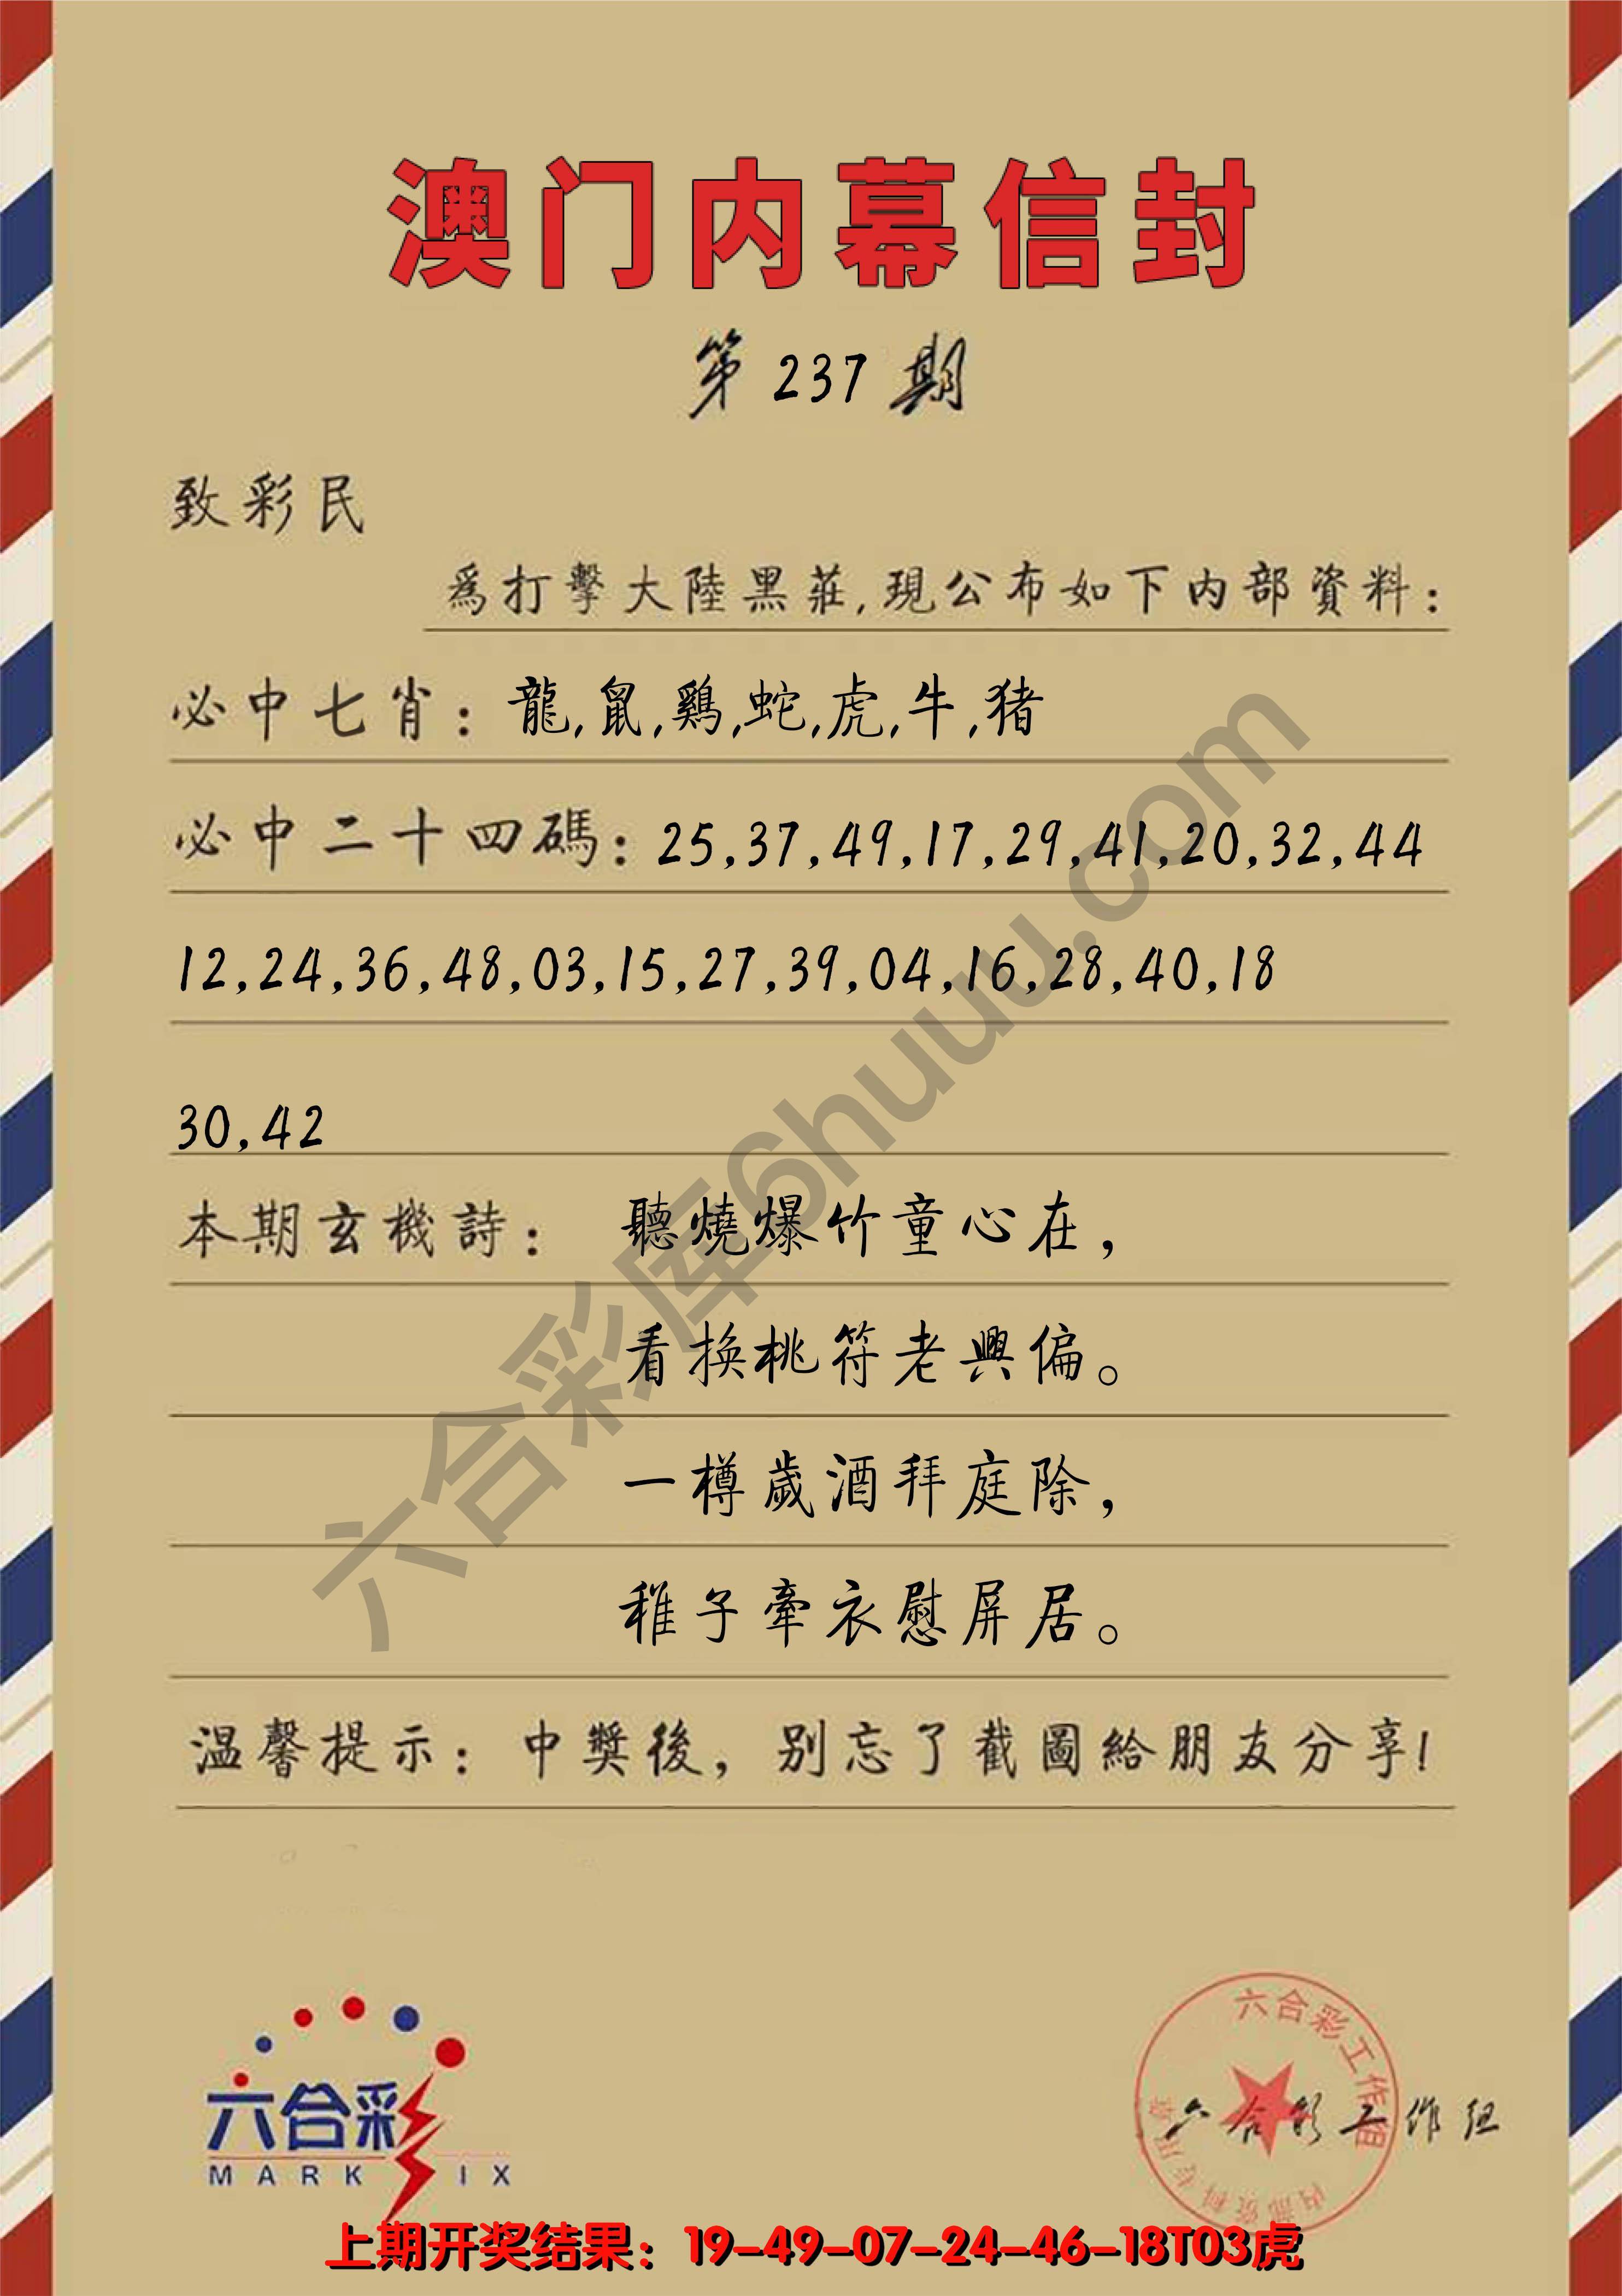 澳门内幕信封
第 237 期
致彩民
爲打擊大陸黑莊,現公布如下内部資料:
必中七肖: 龍,鼠,鷄,蛇,虎,牛,猪
必中二十四碼: 25,37,49,17,29,41,20,32,44
12,24,36,48,03,15,27,39,04,16,28,40,18
30,42
本期玄機詩: 聽燒爆竹童心在,
看换桃符老興偏。
一樽歲酒拜庭除,
稚子牽衣慰屏居。
温馨提示: 中獎後, 别忘了截圖給朋友分享!
六合彩库6huuu.com
六合彩
MARK IX
六合彩工作组
内部资料专用章
六合彩工作组
上期开奖结果: 19-49-07-24-46-18T03虎